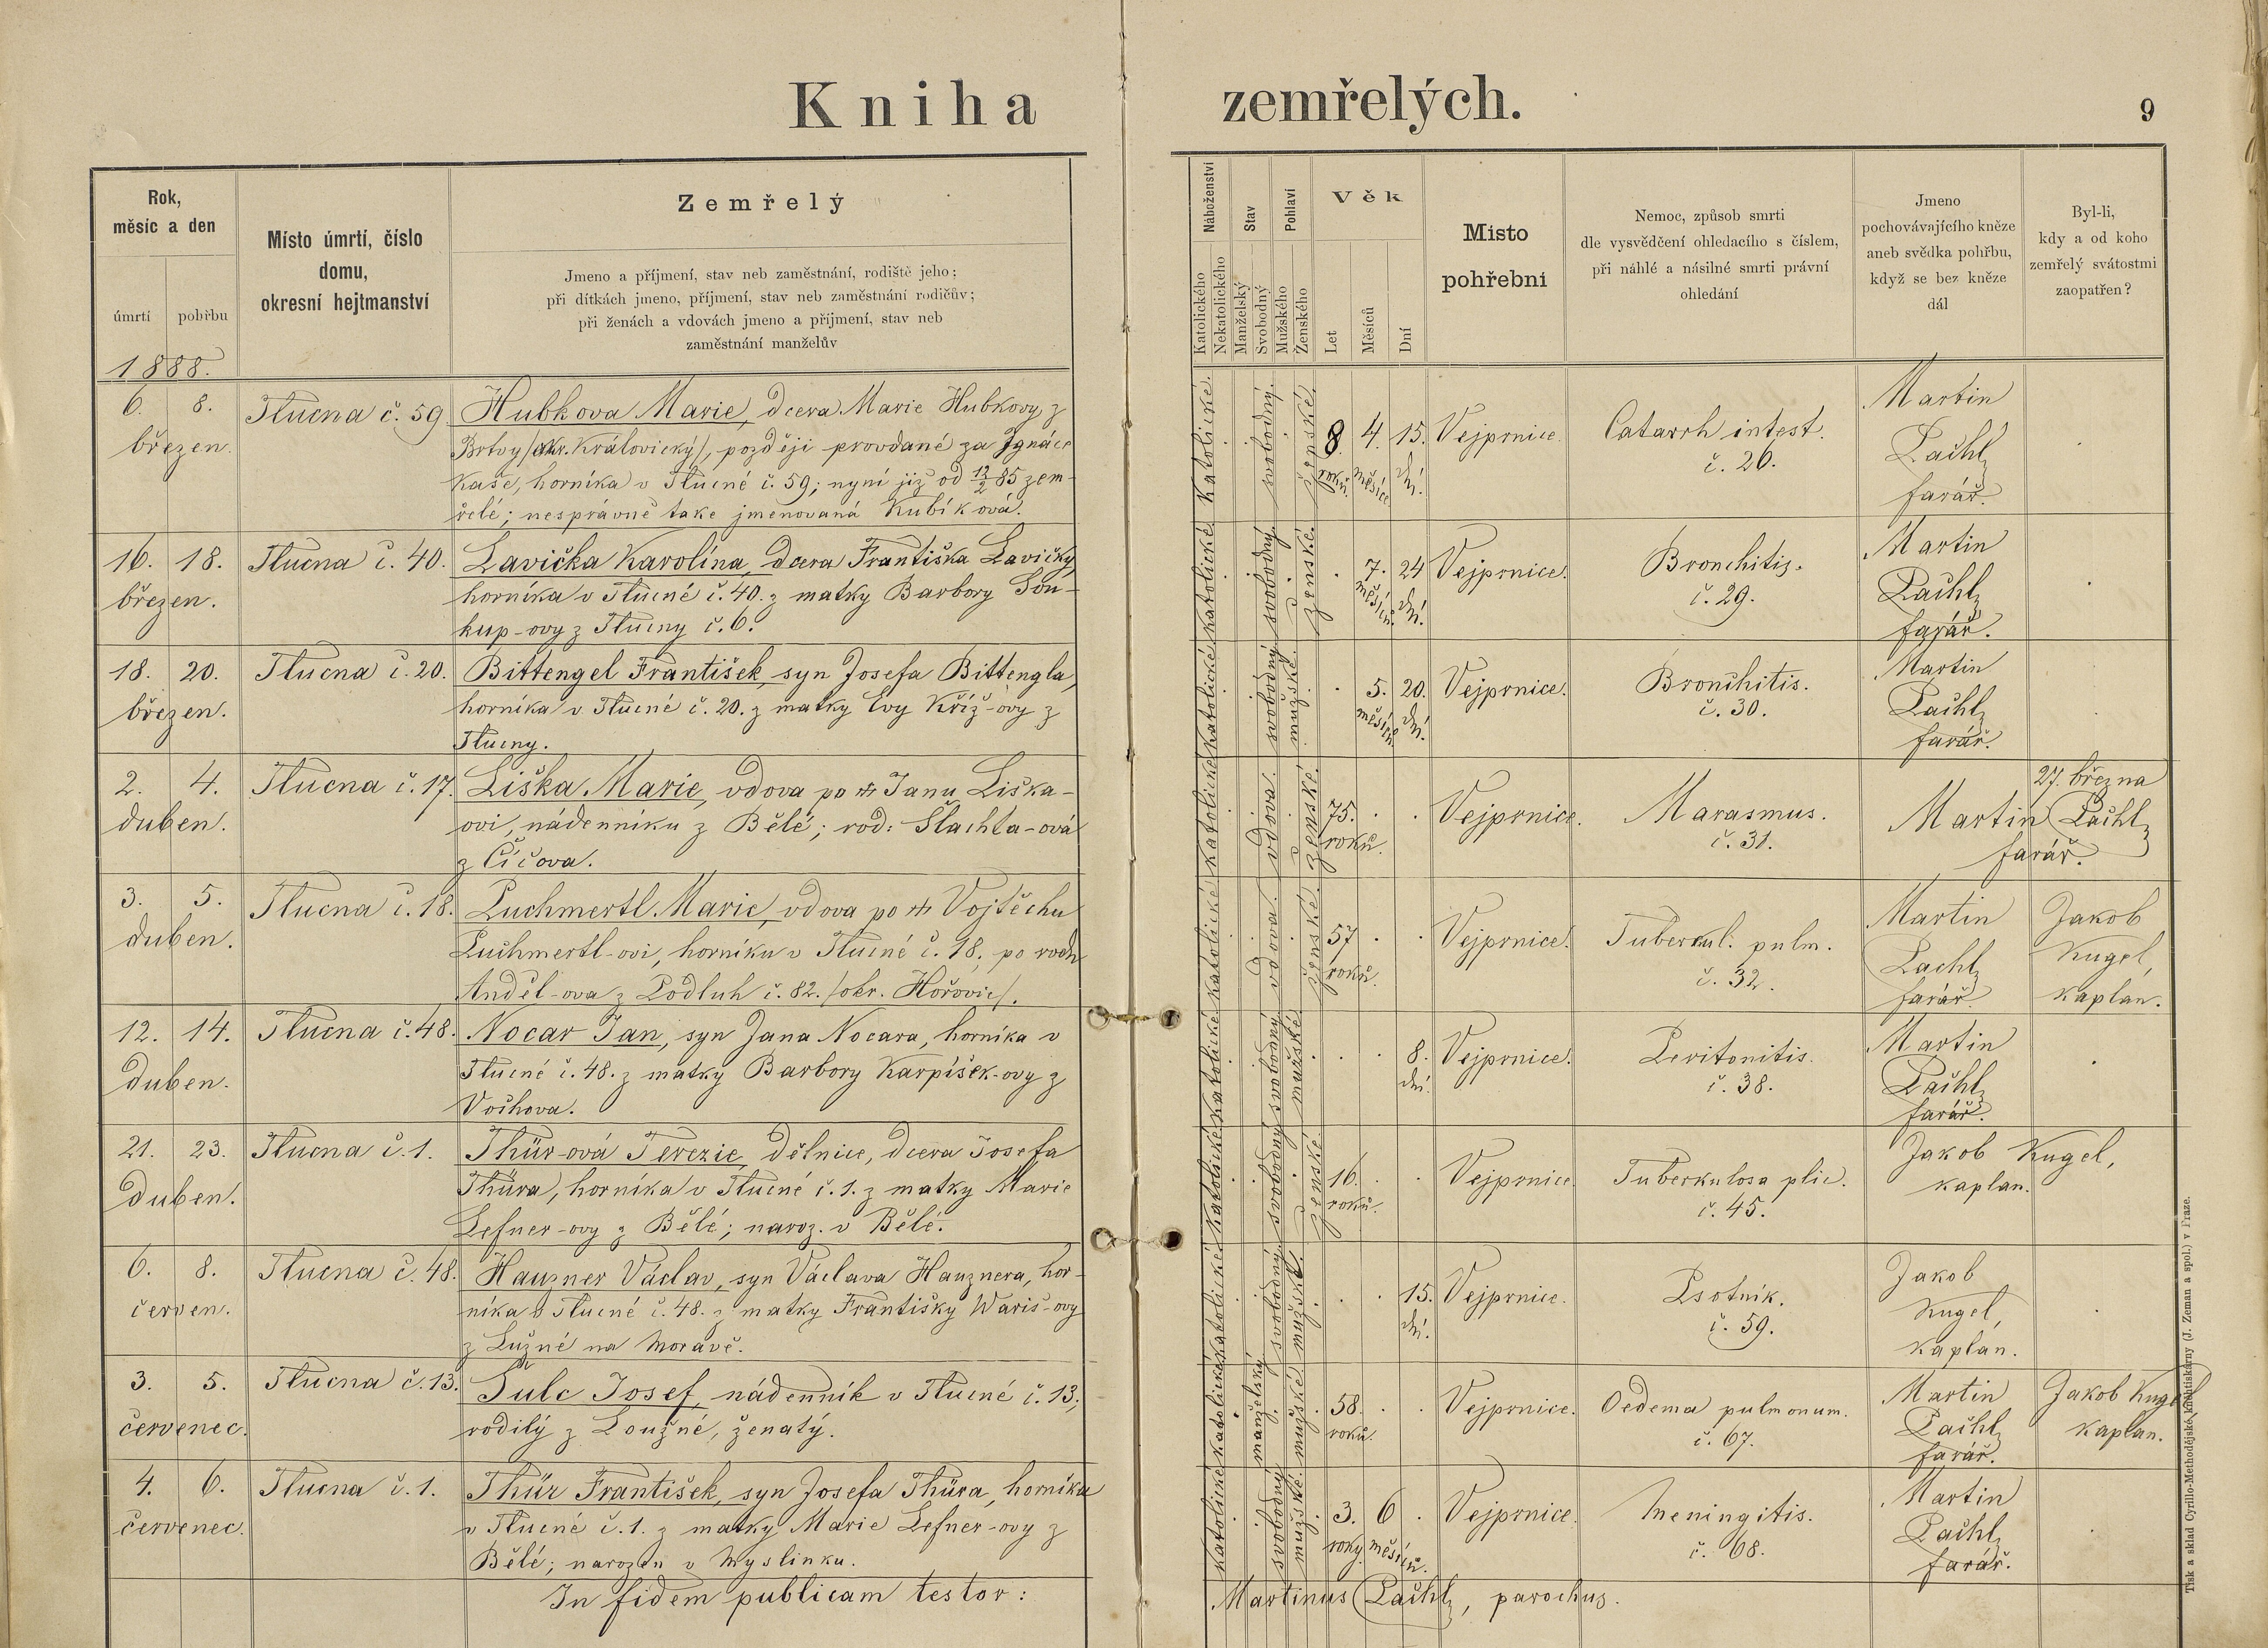 Kniha zemřelých.
9
Rok,
měsíc a den
úmrtí
pohřbu
Místo úmrtí, číslo
domu,
okresní hejtmanství
Zemřelý
Jmeno a příjmení, stav neb zaměstnání, rodiště jeho;
při dítkách jmeno, příjmení, stav neb zaměstnání rodičův;
při ženách a vdovách jmeno a příjmení, stav neb
zaměstnání manželův
Náboženství
Katolického
Nekatolického
Stav
Manželský
Svobodný
Pohlaví
Mužského
Ženského
Věk
Let
Měsíců
Dní
Místo
pohřební
Nemoc, způsob smrti
dle vysvědčení ohledacího s číslem,
při náhlé a násilné smrti právní
ohledání
Jmeno
pochovávajícího kněze
aneb svědka pohřbu,
když se bez kněze
dál
Byl-li,
kdy a od koho
zemřelý svátostmi
zaopatřen?
1888.
6. 8.
březen.
Tlucna č. 59
Hubkova Marie, dcera Marie Hubkovy z
Brtvy /okr. Královický/, později provdané za Ignáce
Kaše, horníka v Tlucné č. 59; nyní již od 12/2 85 zem-
řelé; nesprávně take jmenovaná Kubíková.
katolické. svobodný. ženské.
8 roků 4. měsíce 15. dní.
Vejprnice.
Catarrh intest.
č. 26.
Martin
Pachl,
farář.
16. 18.
březen.
Tlucna č. 40.
Lavička Karolína, dcera Františka Lavičky,
horníka v Tlucné č. 40. z matky Barbory Sou-
kup-ovy z Tlucny č. 6.
katolické svobodný. ženské.
7. měsíců. 24 dní.
Vejprnice.
Bronchitis.
č. 29.
Martin
Pachl,
farář.
18. 20.
březen.
Tlucna č. 20.
Bittengel František, syn Josefa Bittengla,
horníka v Tlucné č. 20. z matky Evy Kříž-ovy z
Tlucny.
katolické svobodný mužské.
5. měsíců. 20. dní.
Vejprnice.
Bronchitis.
č. 30.
Martin
Pachl,
farář.
2. 4.
duben.
Tlucna č. 17.
Liška Marie, vdova po Janu Liška-
ovi, nádenníku z Bělé; rod: Šlachta-ová
z Číčova.
katolické vdova. ženské.
75. roků.
Vejprnice.
Marasmus.
č. 31.
27. března
Martin Pachl,
farář.
3. 5.
duben.
Tlucna č. 18.
Puchmertl Marie, vdova po Vojtěchu
Puchmertl-ovi, horníku v Tlucné č. 18, po rodu
Anděl-ova z Podluh č. 82. /okr. Hořovic/.
katolické vdova. ženské.
57 roků.
Vejprnice.
Tuberkul. pulm.
č. 32.
Martin
Pachl,
farář.
Jakob
Kugel,
kaplan.
12. 14.
Duben.
Tlucna č. 48.
Nocar Jan, syn Jana Nocara, horníka v
Tlucné č. 48. z matky Barbory Karpíšek-ovy z
Vochova.
katolické svobodný mužské
8. dní.
Vejprnice.
Peritonitis.
č. 38.
Martin
Pachl,
farář.
21. 23.
Duben.
Tlucna č. 1.
Thür-ová Terezie, dělnice, dcera Josefa
Thüra, horníka v Tlucné č. 1. z matky Marie
Lefner-ovy z Bělé; naroz. v Bělé.
katolické svobodný ženské
16. roků.
Vejprnice
Tuberkulosa plic.
č. 45.
Jakob Kugel,
kaplan.
6. 8.
červen.
Tlucna č. 48.
Hauzner Václav, syn Václava Hauznera, hor-
níka v Tlucné č. 48. z matky Františky Wariš-ovy
z Lužné na Moravě.
katolické svobodný. mužské.
15. dní.
Vejprnice.
Psotník.
č. 59.
Jakob
Kugel,
kaplan.
3. 5.
červenec.
Tlucna č. 13.
Šulc Josef, nádenník v Tlucné č. 13,
rodilý z Loužné, ženatý.
katolické manželský. mužské
58. roků.
Vejprnice.
Oedema pulmonum.
č. 67.
Martin
Pachl,
farář.
Jakob Kugel
kaplan.
4. 6.
červenec.
Tlucna č. 1.
Thür František, syn Josefa Thüra, horníka
v Tlucné č. 1. z matky Marie Lefner-ovy z
Bělé; narozen v Myslinku.
katolické svobodný mužské.
3. roky. 6 měsíců.
Vejprnice.
Meningitis.
č. 68.
Martin
Pachl,
farář.
In fidem publicam testor:
Martinus Pachl, parochus.
Tisk a sklad Cyrillo-Methodějské knihtiskárny (J. Zeman a spol.) v Praze.